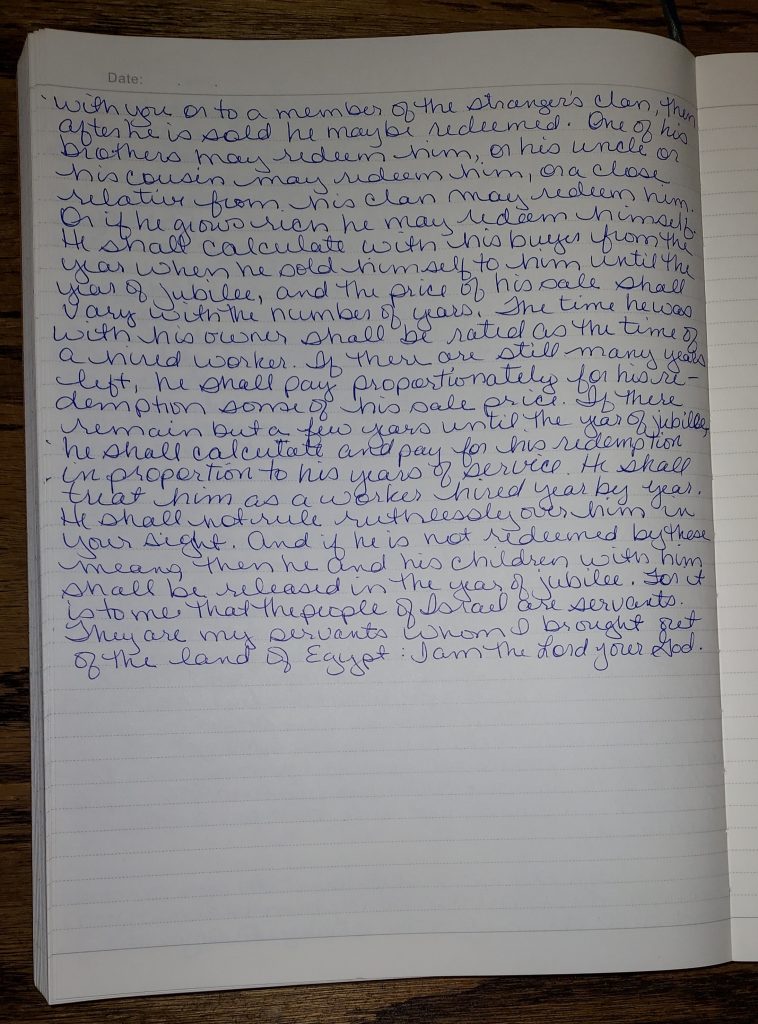 Date:
with you or to a member of the stranger's clan, then
after he is sold he may be redeemed. One of his
brothers may redeem him, or his uncle or
his cousin may redeem him, or a close
relative from his clan may redeem him.
Or if he grows rich he may redeem himself.
He shall calculate with his buyer from the
year when he sold himself to him until the
year of jubilee, and the price of his sale shall
vary with the number of years. The time he was
with his owner shall be rated as the time of
a hired worker. If there are still many years
left, he shall pay proportionately for his re-
demption some of his sale price. If there
remain but a few years until the year of jubilee,
he shall calculate and pay for his redemption
in proportion to his years of service. He shall
treat him as a worker hired year by year.
He shall not rule ruthlessly over him in
your sight. And if he is not redeemed by these
means, then he and his children with him
shall be released in the year of jubilee. For it
is to me that the people of Israel are servants.
They are my servants whom I brought out
of the land of Egypt: I am the Lord your God.